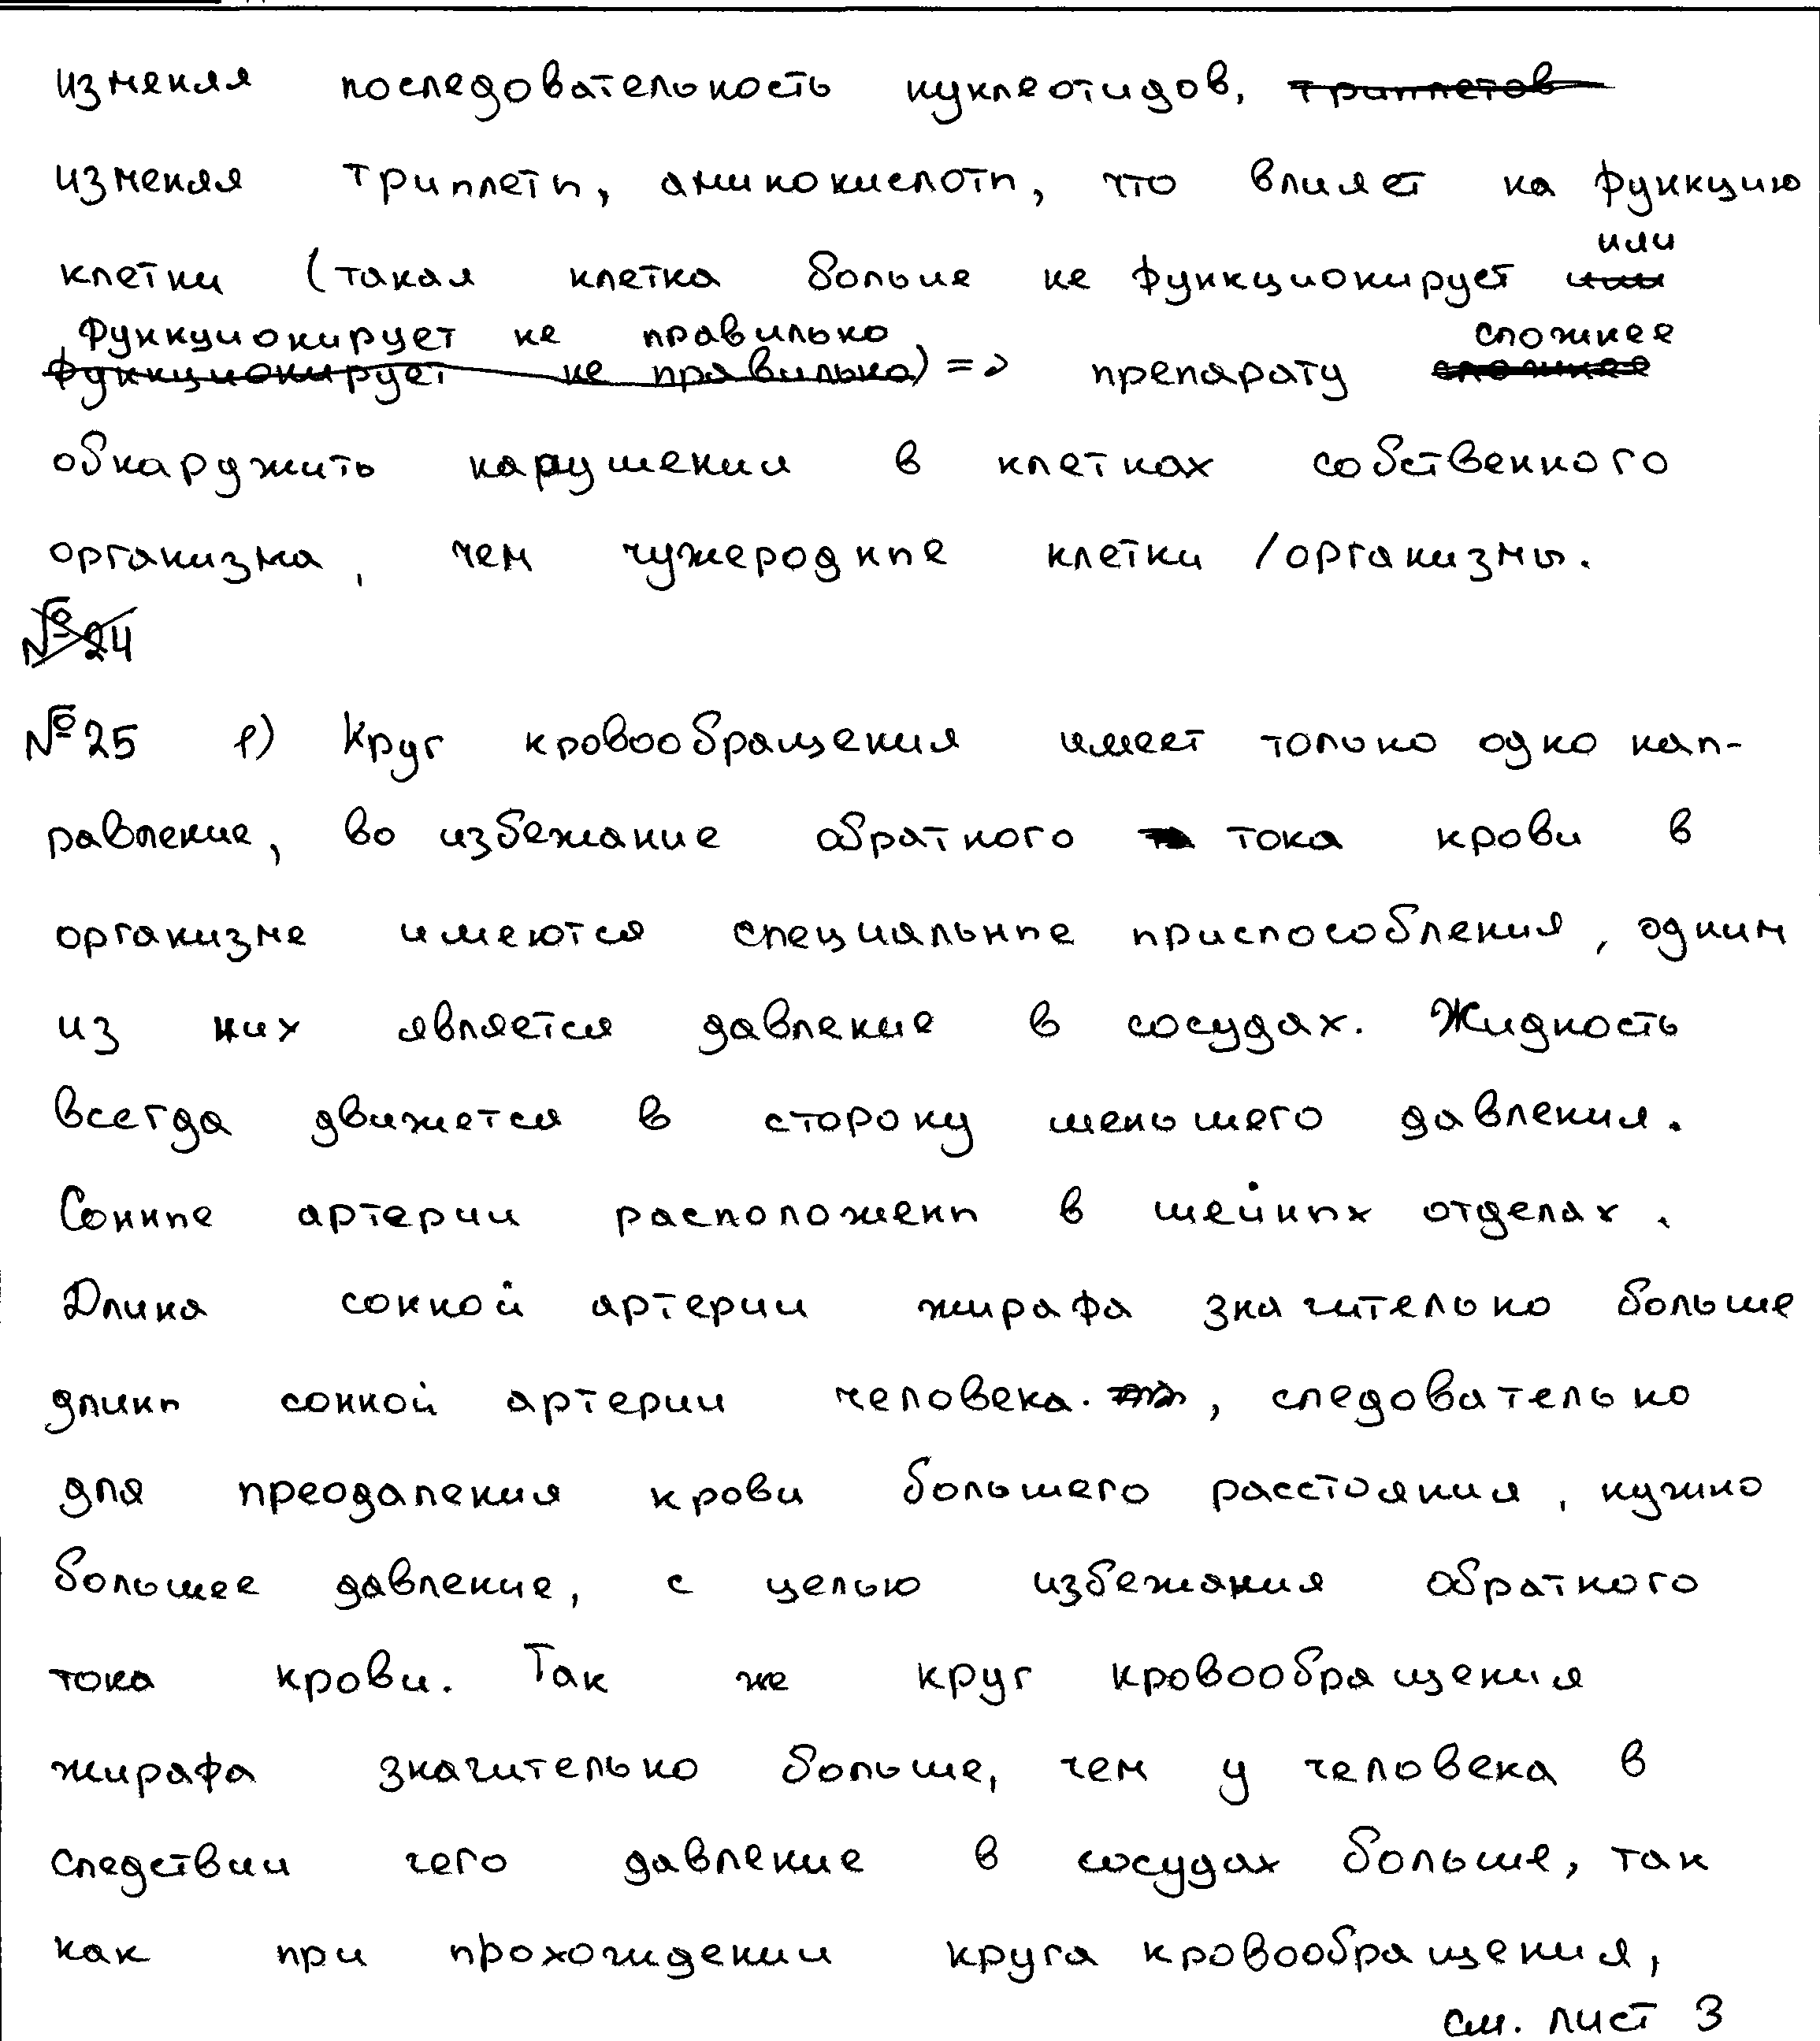 изменяя последовательность нуклеотидов, триплетов
изменяя триплеты, аминокислоты, что влияет на функцию
или
клетки (такая клетка больше не функционирует или
функционирует не правильно сложнее
функционирует не правильно) => препарату сложнее
обнаружить нарушения в клетках собственного
организма, чем чужеродные клетки /организмы.
№24
№25 1) Круг кровообращения имеет только одно нап-
равление, во избежание обратного тока крови в
организме имеются специальные приспособления, одним
из них является давление в сосудах. Жидкость
всегда движется в сторону меньшего давления.
Сонные артерии расположены в шейных отделах.
Длина сонной артерии жирафа значительно больше
длины сонной артерии человека. , следовательно
для преодаления крови большего расстояния, нужно
большее давление, с целью избежания обратного
тока крови. Так же круг кровообращения
жирафа значительно больше, чем у человека в
следствии чего давление в сосудах больше, так
как при прохождении круга кровообращения,
см. лист 3